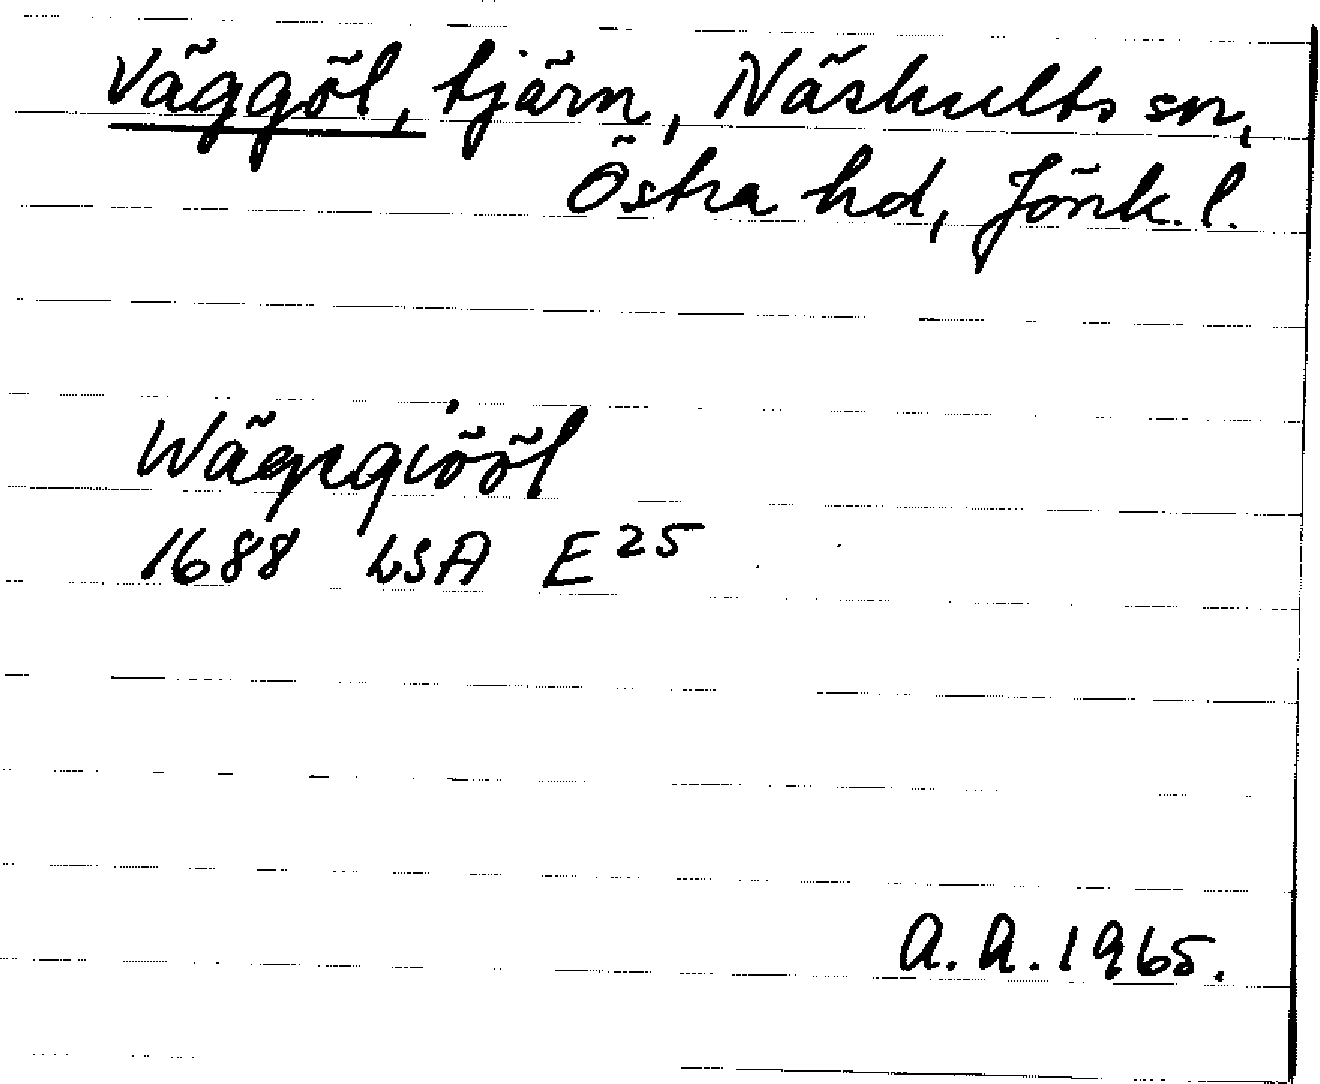 Väggöl, tjärn, Näshults sn,
Östra hd, Jönk. l.
Wägegiööl
1688 LSA E 25
A. A. 1965.